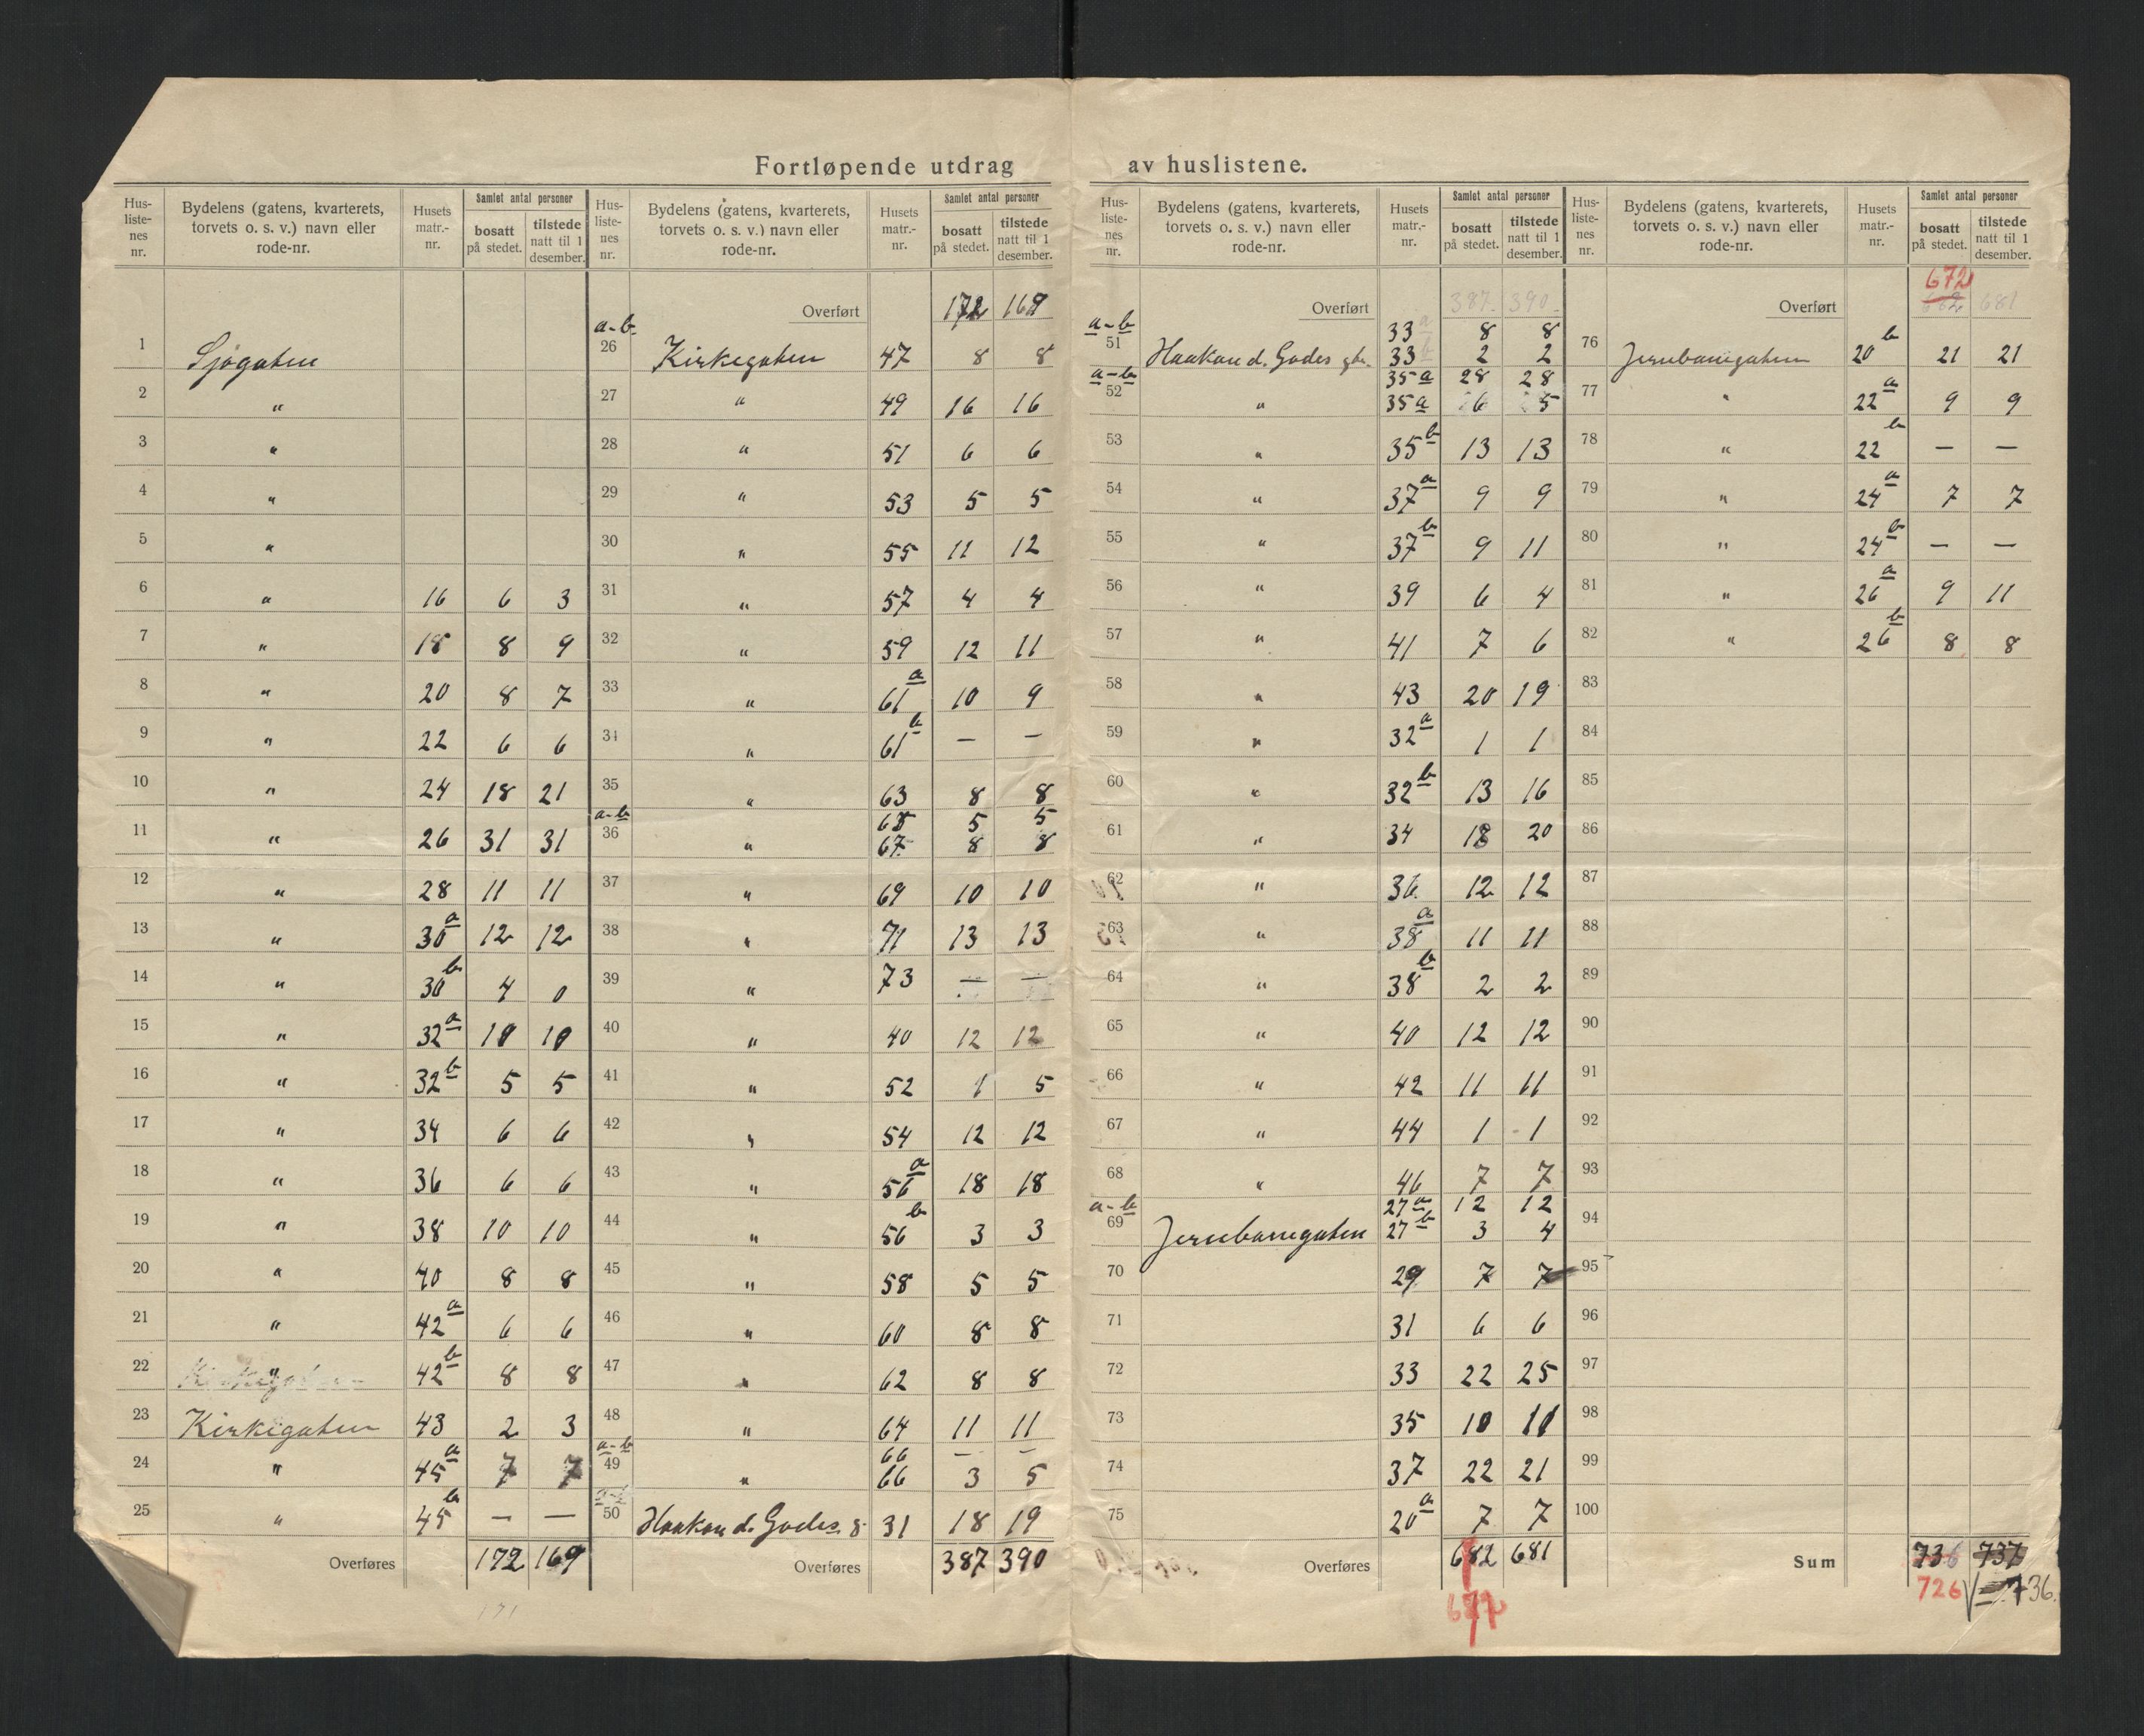 Fortløpende utdrag av huslistene.
Hus-liste-nes nr. | Bydelens (gatens, kvarterets, torvets o. s. v.) navn eller rode-nr. | Husets matr.-nr. | Samlet antal personer bosatt på stedet. | tilstede natt til 1 desember.
1 Sjøgaten
2 "
3 "
4 "
5 "
6 " 16 6 3
7 " 18 8 9
8 " 20 8 7
9 " 22 6 6
10 " 24 18 21
11 " 26 31 31
12 " 28 11 11
13 " 30a 12 12
14 " 30b 4 0
15 " 32a 10 10
16 " 32b 5 5
17 " 34 6 6
18 " 36 6 6
19 " 38 10 10
20 " 40 8 8
21 " 42a 6 6
22 " 42b 8 8
23 Kirkegaten 43 2 3
24 " 45a 7 7
25 " 45b — —
Overføres 172 169
171
Hus-liste-nes nr. | Bydelens (gatens, kvarterets, torvets o. s. v.) navn eller rode-nr. | Husets matr.-nr. | Samlet antal personer bosatt på stedet. | tilstede natt til 1 desember.
Overført 172 169
a-b 26 Kirkegaten 47 8 8
27 " 49 16 16
28 " 51 6 6
29 " 53 5 5
30 " 55 11 12
31 " 57 4 4
32 " 59 12 11
33 " 61a 10 9
34 " 61b — —
35 " 63 8 8
a-b 65 5 5
36 " 67 8 8
37 " 69 10 10
38 " 71 13 13
39 " 73 — —
40 " 40 12 12
41 " 52 1 5
42 " 54 12 12
43 " 56a 18 18
44 " 56b 3 3
45 " 58 5 5
46 " 60 8 8
47 " 62 8 8
48 " 64 11 11
a-b 66 — —
49 " 66 3 5
a-b
50 Haakon d. Godes g. 31 18 19
Overføres 387 390
Hus-liste-nes nr. | Bydelens (gatens, kvarterets, torvets o. s. v.) navn eller rode-nr. | Husets matr.-nr. | Samlet antal personer bosatt på stedet. | tilstede natt til 1 desember.
Overført 387 390
a-b 33a 8 8
51 Haakon d. Godes gt. 33b 2 2
a-b 35a 28 28
52 " 35a 6 5
53 " 35b 13 13
54 " 37a 9 9
55 " 37b 9 11
56 " 39 6 4
57 " 41 7 6
58 " 43 20 19
59 " 32a 1 1
60 " 32b 13 16
61 " 34 18 20
62 " 36 12 12
63 " 38a 11 11
64 " 38b 2 2
65 " 40 12 12
66 " 42 11 11
67 " 44 1 1
68 " 46 7 7
a-b 27a 12 12
69 Jernbanegaten 27b 3 4
70 29 7 7
71 31 6 6
72 33 22 25
73 35 10 10
74 37 22 21
75 20a 7 7
Overføres 682 681
Hus-liste-nes nr. | Bydelens (gatens, kvarterets, torvets o. s. v.) navn eller rode-nr. | Husets matr.-nr. | Samlet antal personer bosatt på stedet. | tilstede natt til 1 desember.
672
Overført 682 681
76 Jernbanegaten 20b 21 21
77 " 22a 9 9
78 " 22b — —
79 " 24a 7 7
80 " 24b — —
81 " 26a 9 11
82 " 26b 8 8
83
84
85
86
87
88
89
90
91
92
93
94
95
96
97
98
99
100
Sum 736 737
726 736.